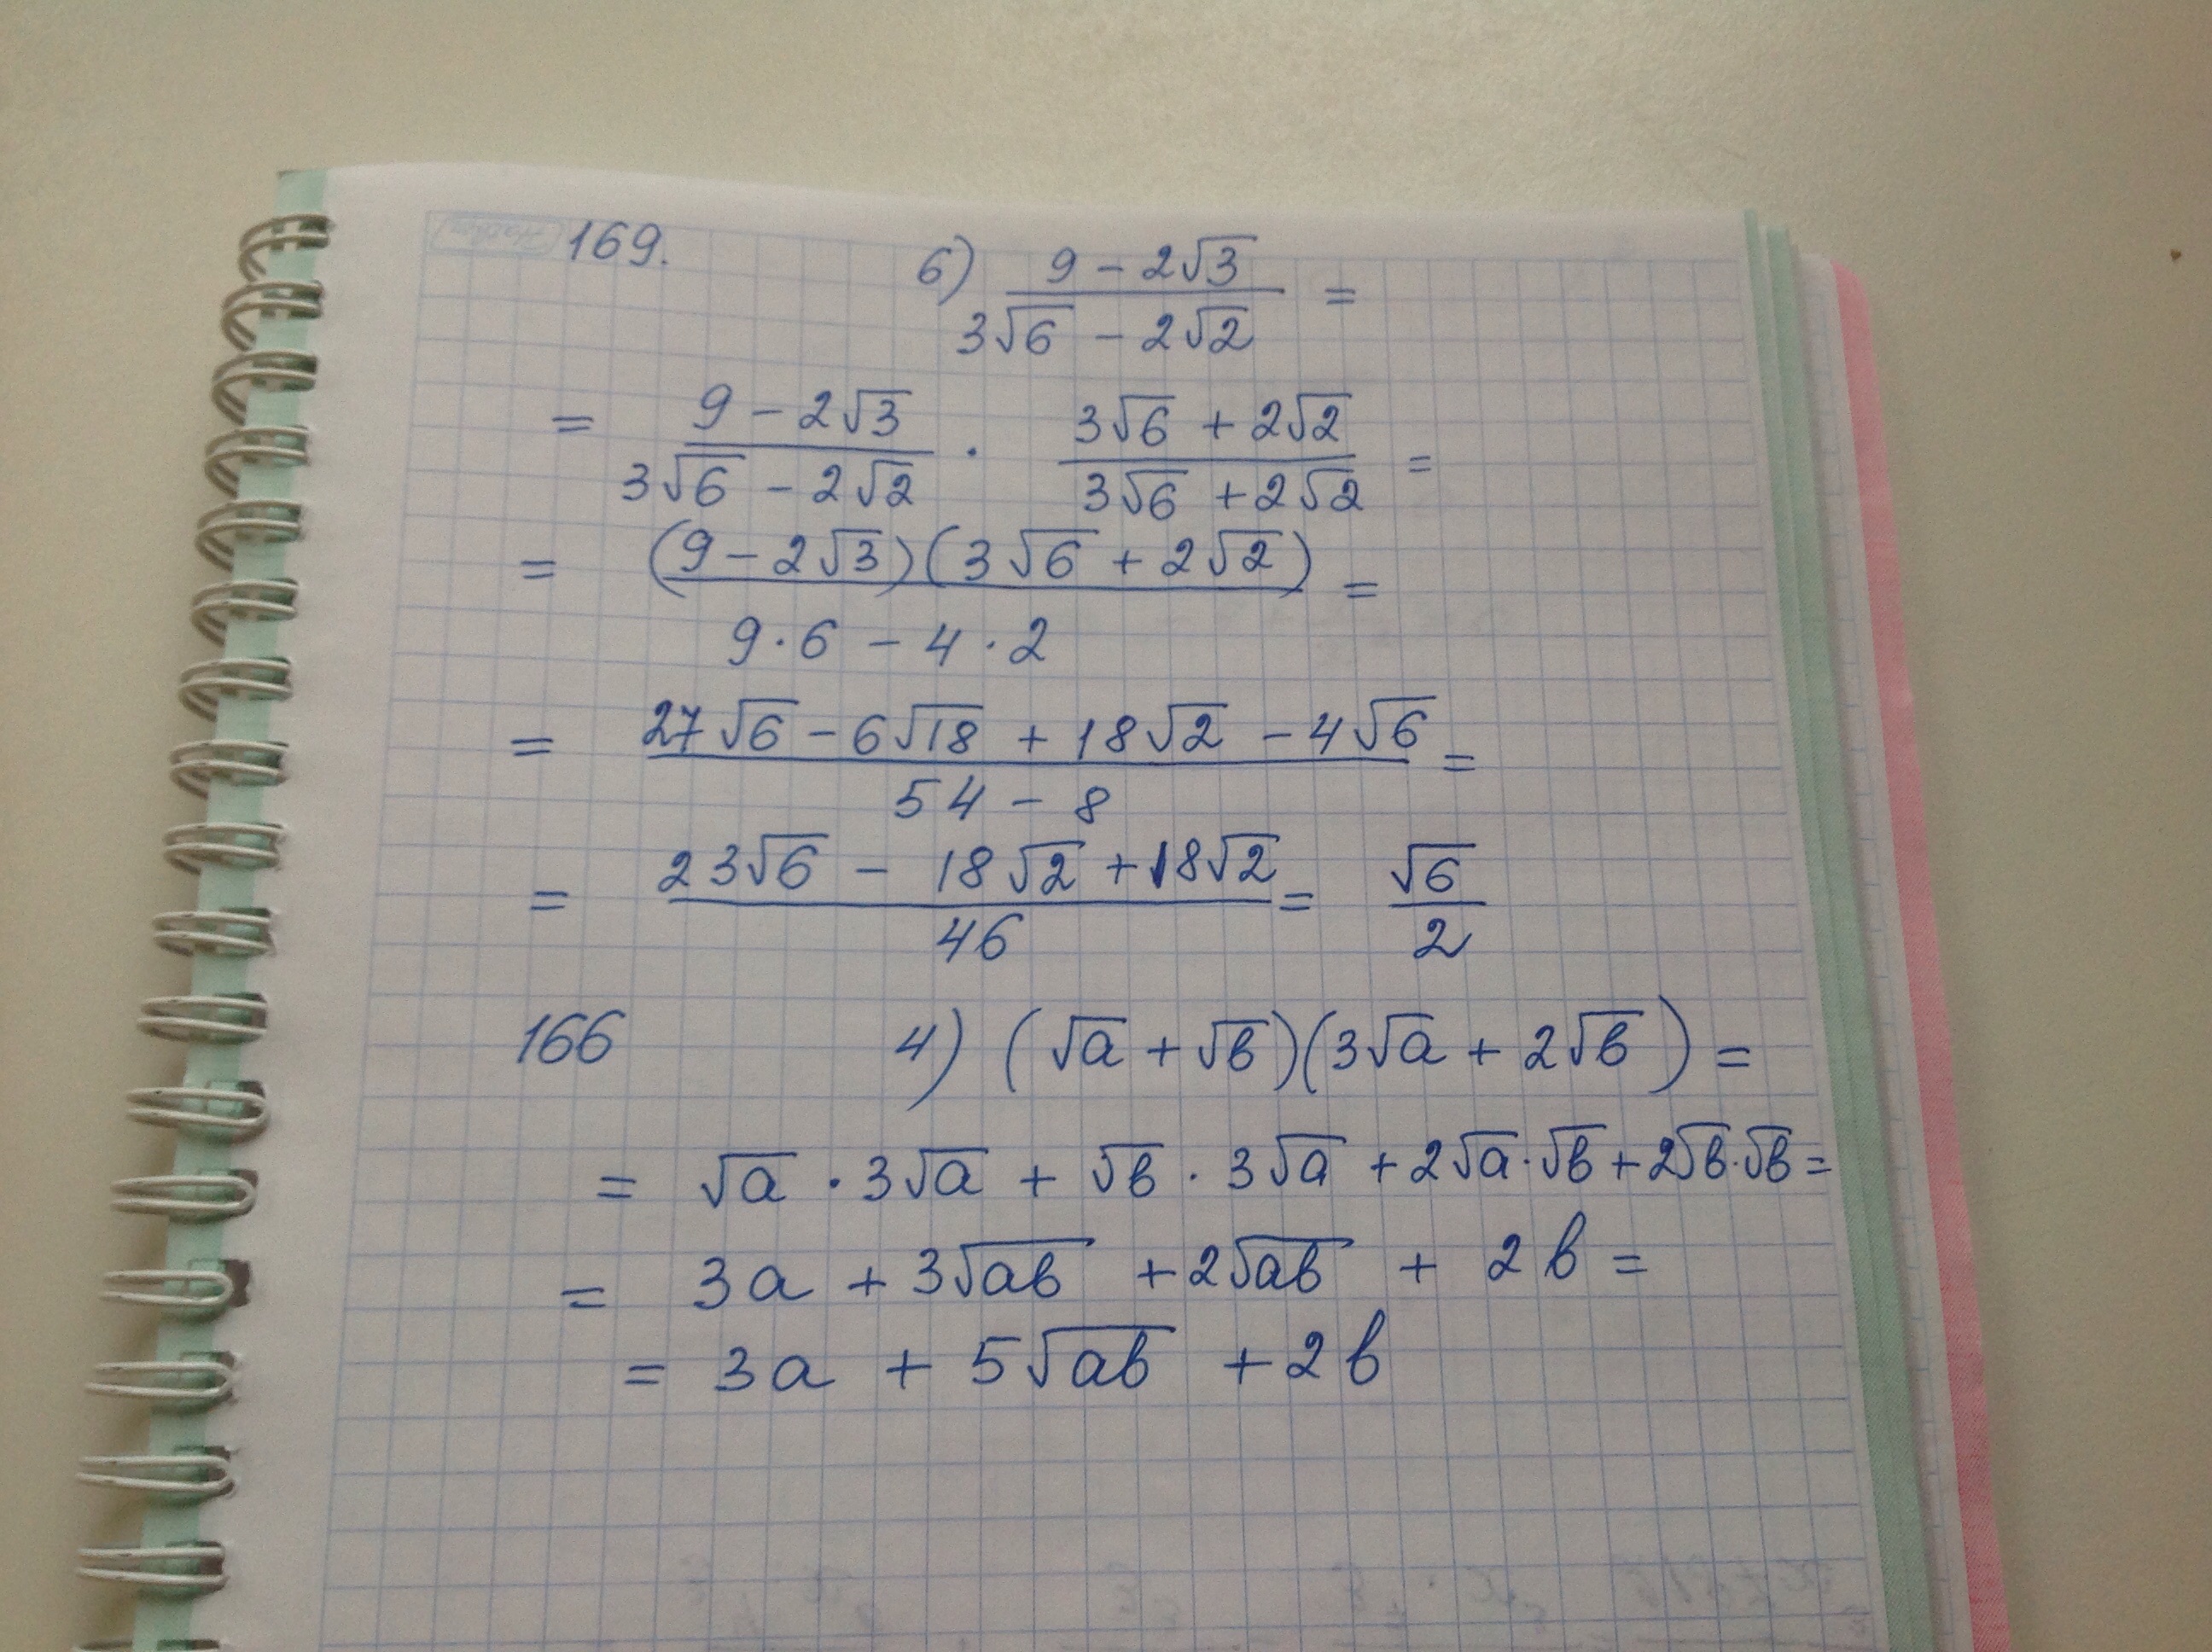 169. 6) (9 - 2√3)/(3√6 - 2√2) =
= (9 - 2√3)/(3√6 - 2√2) · (3√6 + 2√2)/(3√6 + 2√2) =
= ((9 - 2√3)(3√6 + 2√2))/(9·6 - 4·2) =
= (27√6 - 6√18 + 18√2 - 4√6)/(54 - 8) =
= (23√6 - 18√2 + 18√2)/46 = √6/2
166 4) (√a + √b)(3√a + 2√b) =
= √a · 3√a + √b · 3√a + 2√a·√b + 2√b·√b =
= 3a + 3√ab + 2√ab + 2b =
= 3a + 5√ab + 2b